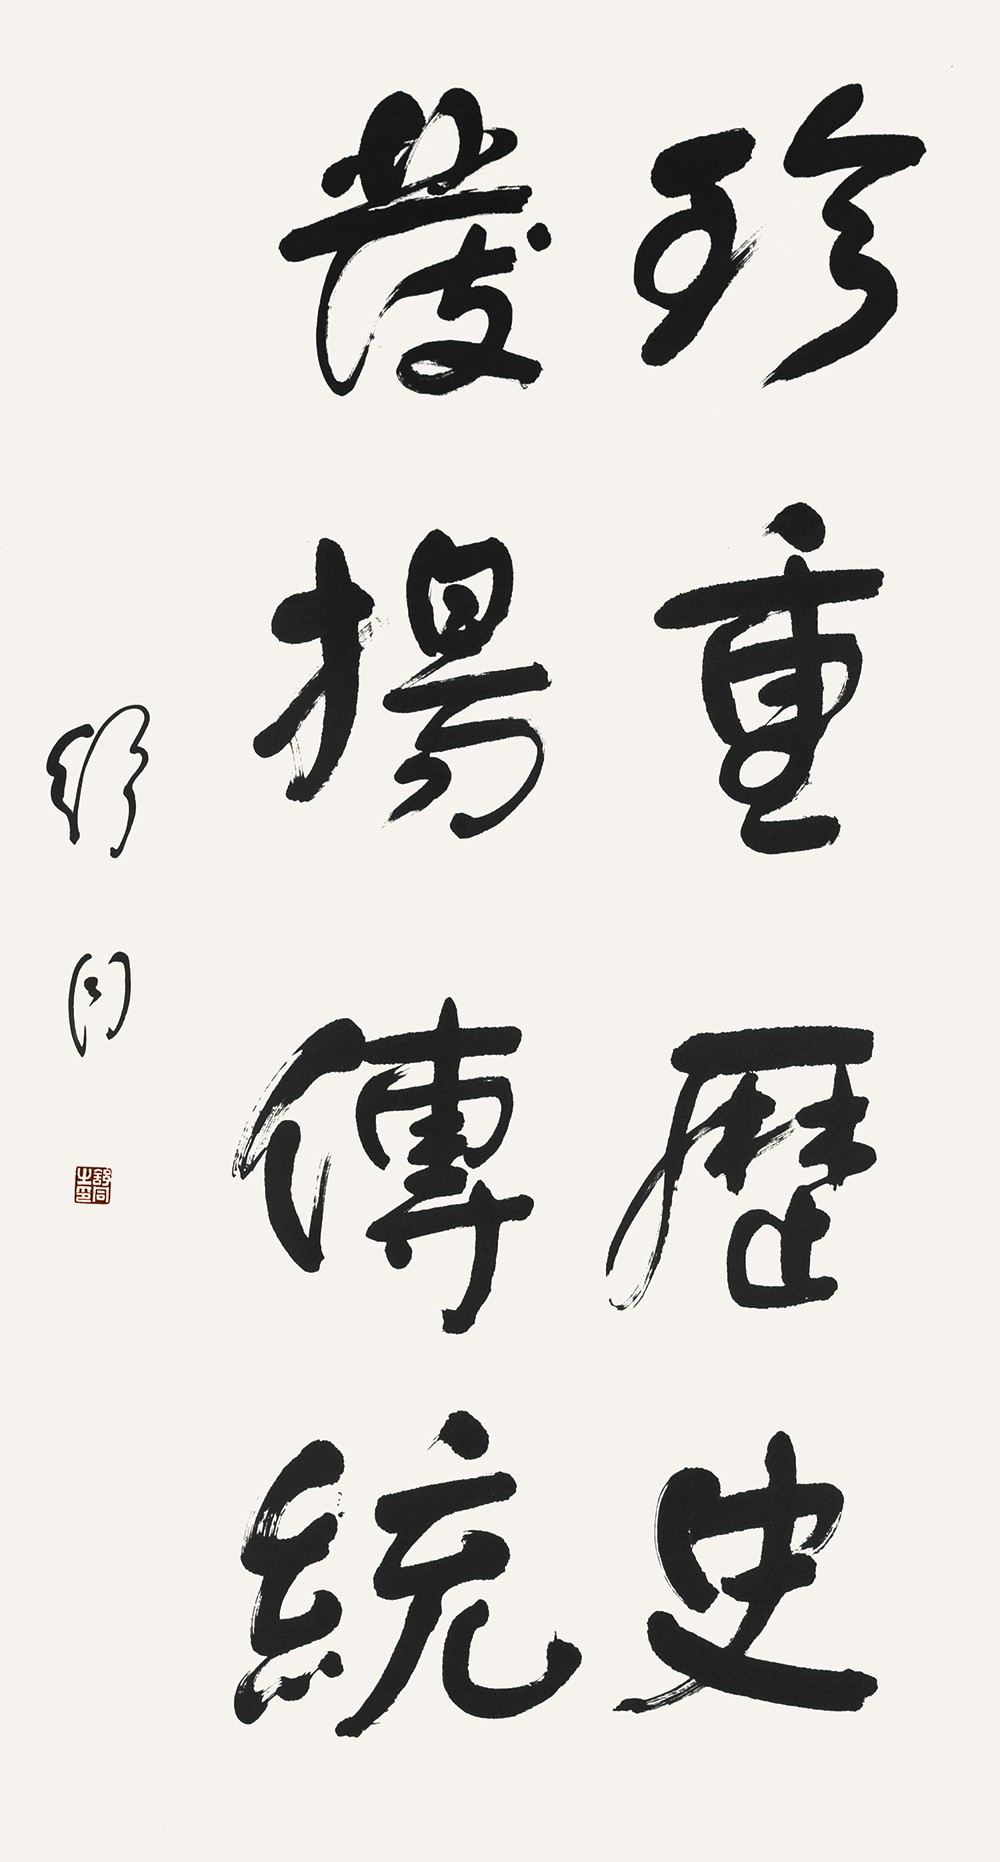 珍重歷史
發揚傳統
舒同
舒同之印